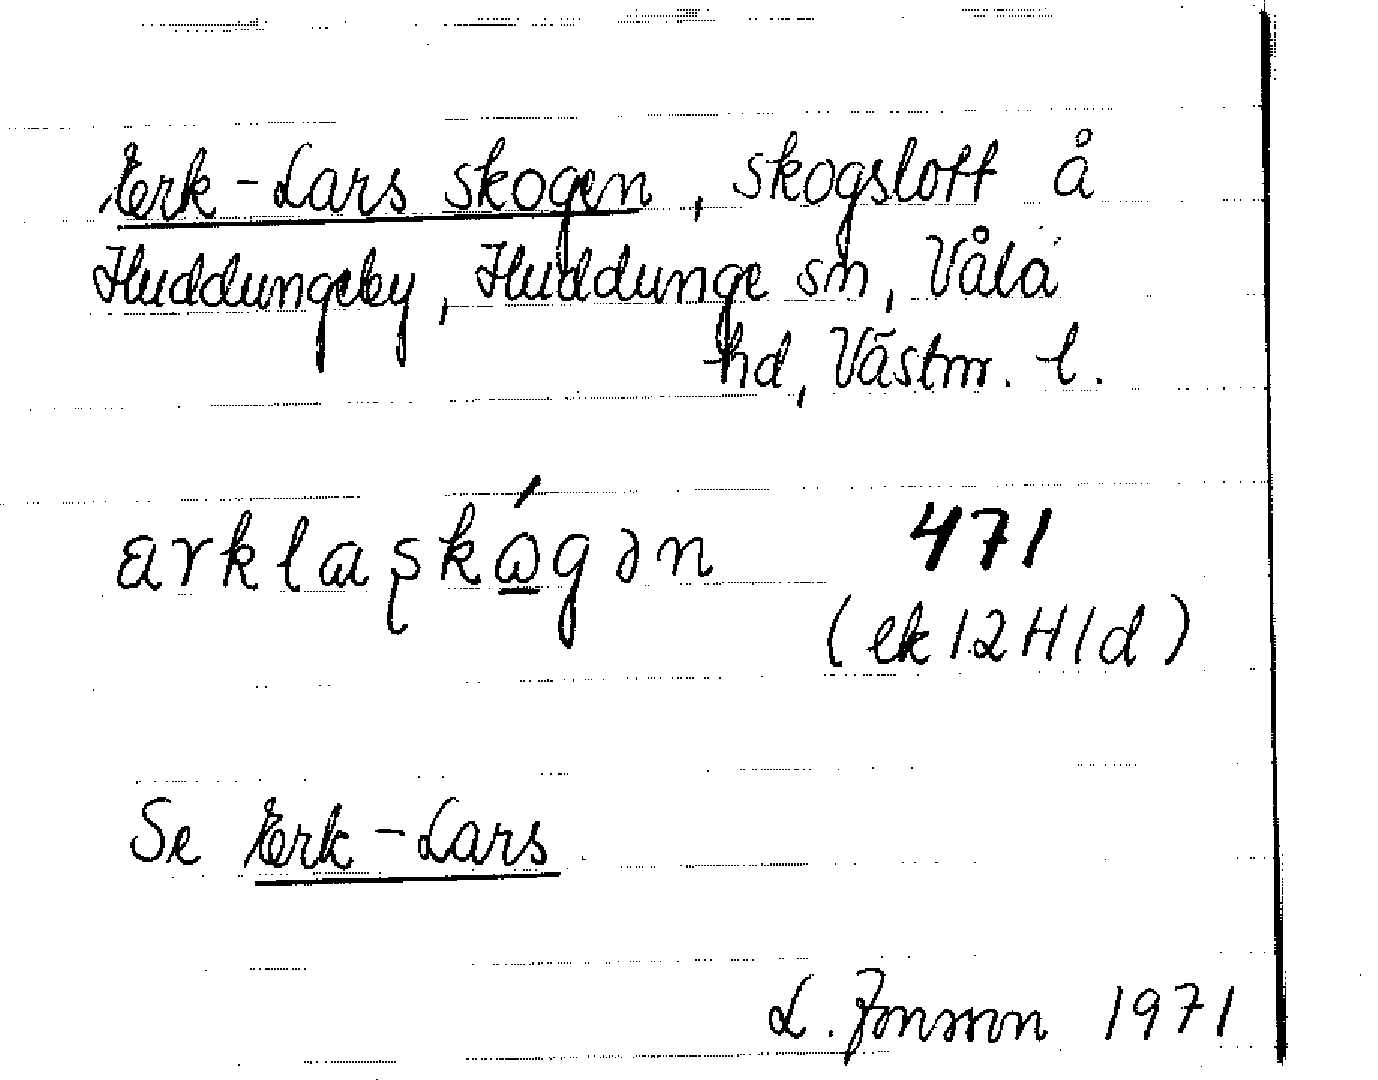 Erk-Lars skogen, skogslott å
Huddungeby, Huddunge sn, Våla
hd, Västm. l.
arklaʂkǿgən 471
(ek 12H1d)
Se Erk-Lars
L. Jonsson 1971